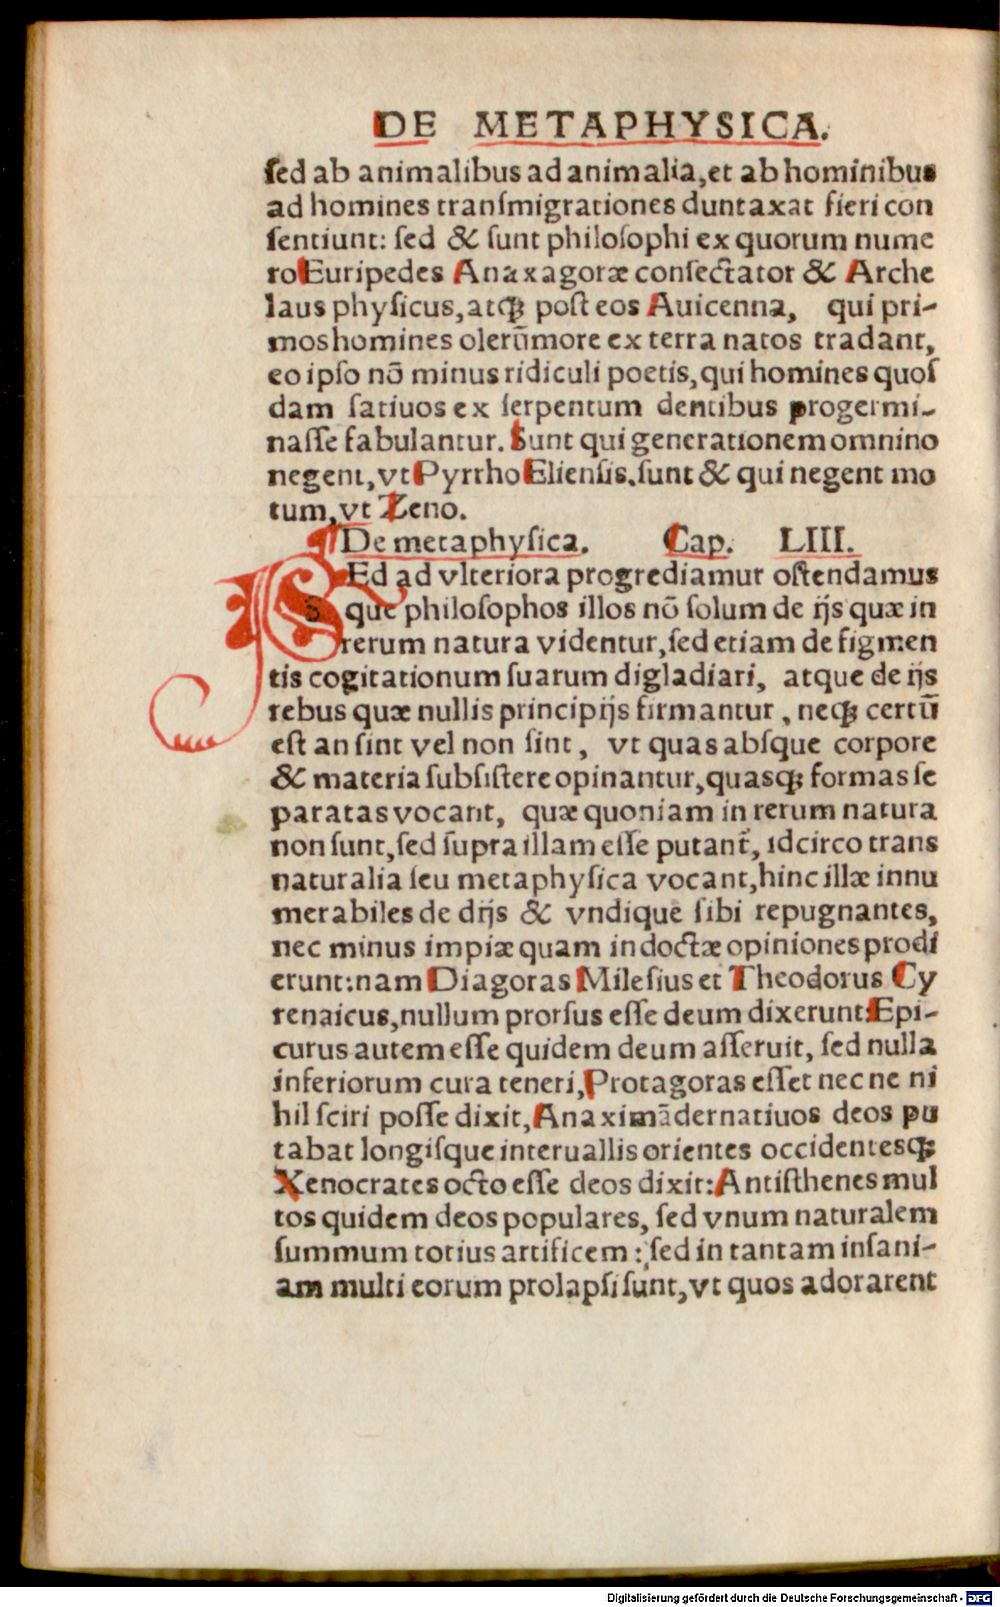 DE METAPHYSICA.
ſed ab animalibus ad animalia, et ab hominibus
ad homines tranſmigrationes duntaxat fieri con
ſentiunt: ſed & ſunt philoſophi ex quorum nume
ro Euripedes Anaxagoræ conſectator & Arche
laus phyſicus, atqꝫ poſt eos Auicenna, qui pri-
mos homines olerū more ex terra natos tradant,
eo ipſo nō minus ridiculi poetis, qui homines quoſ
dam ſatiuos ex ſerpentum dentibus progermi-
naſſe fabulantur. Sunt qui generationem omnino
negent, vt Pyrrho Elienſis. ſunt & qui negent mo
tum, vt Zeno.
¶ De metaphyſica. Cap. LIII.
SEd ad vlteriora progrediamur oſtendamus
que philoſophos illos nō ſolum de ijs quæ in
rerum natura videntur, ſed etiam de figmen
tis cogitationum ſuarum digladiari, atque de ijs
rebus quæ nullis principijs firmantur, neqꝫ certū
eſt an ſint vel non ſint, vt quas abſque corpore
& materia ſubſiſtere opinantur, quasqꝫ formas ſe
paratas vocant, quæ quoniam in rerum natura
non ſunt, ſed ſupra illam eſſe putant, idcirco trans
naturalia ſeu metaphyſica vocant, hinc illæ innu
merabiles de dijs & vndique ſibi repugnantes,
nec minus impiæ quam indoctæ opiniones prodi
erunt: nam Diagoras Mileſius et Theodorus Cy
renaicus, nullum prorſus eſſe deum dixerunt: Epi-
curus autem eſſe quidem deum aſſeruit, ſed nulla
inferiorum cura teneri, Protagoras eſſet nec ne ni
hil ſciri poſſe dixit, Anaximāder natiuos deos pu
tabat longiſque interuallis orientes occidentesqꝫ
Xenocrates octo eſſe deos dixit: Antiſthenes mul
tos quidem deos populares, ſed vnum naturalem
ſummum totius artificem: ſed in tantam inſani-
am multi eorum prolapſi ſunt, vt quos adorarent
Digitalisierung gefördert durch die Deutsche Forschungsgemeinschaft - DFG